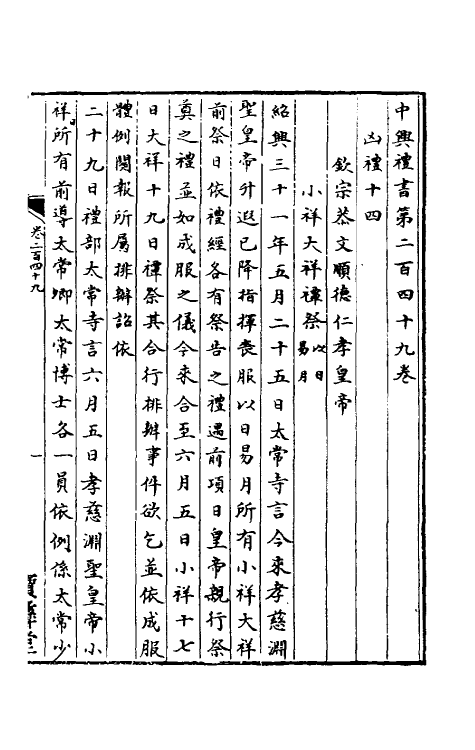 中興禮書第二百四十九卷
凶禮十四
欽宗恭文順德仁孝皇帝
小祥大祥禫祭以日易月
紹興三十一年五月二十五日太常寺言今來孝慈淵
聖皇帝升遐已降指揮喪服以日易月所有小祥大祥
前祭日依禮經各有祭告之禮遇前項日皇帝親行祭
奠之禮並如成服之儀今來合至六月五日小祥十七
日大祥十九日禫祭其合行排辦事件欲乞並依成服
體例關報所屬排辦詔依
二十九日禮部太常寺言六月五日孝慈淵聖皇帝小
祥所有前導太常卿太常博士各一員依例係太常少
卷二百四十九
一